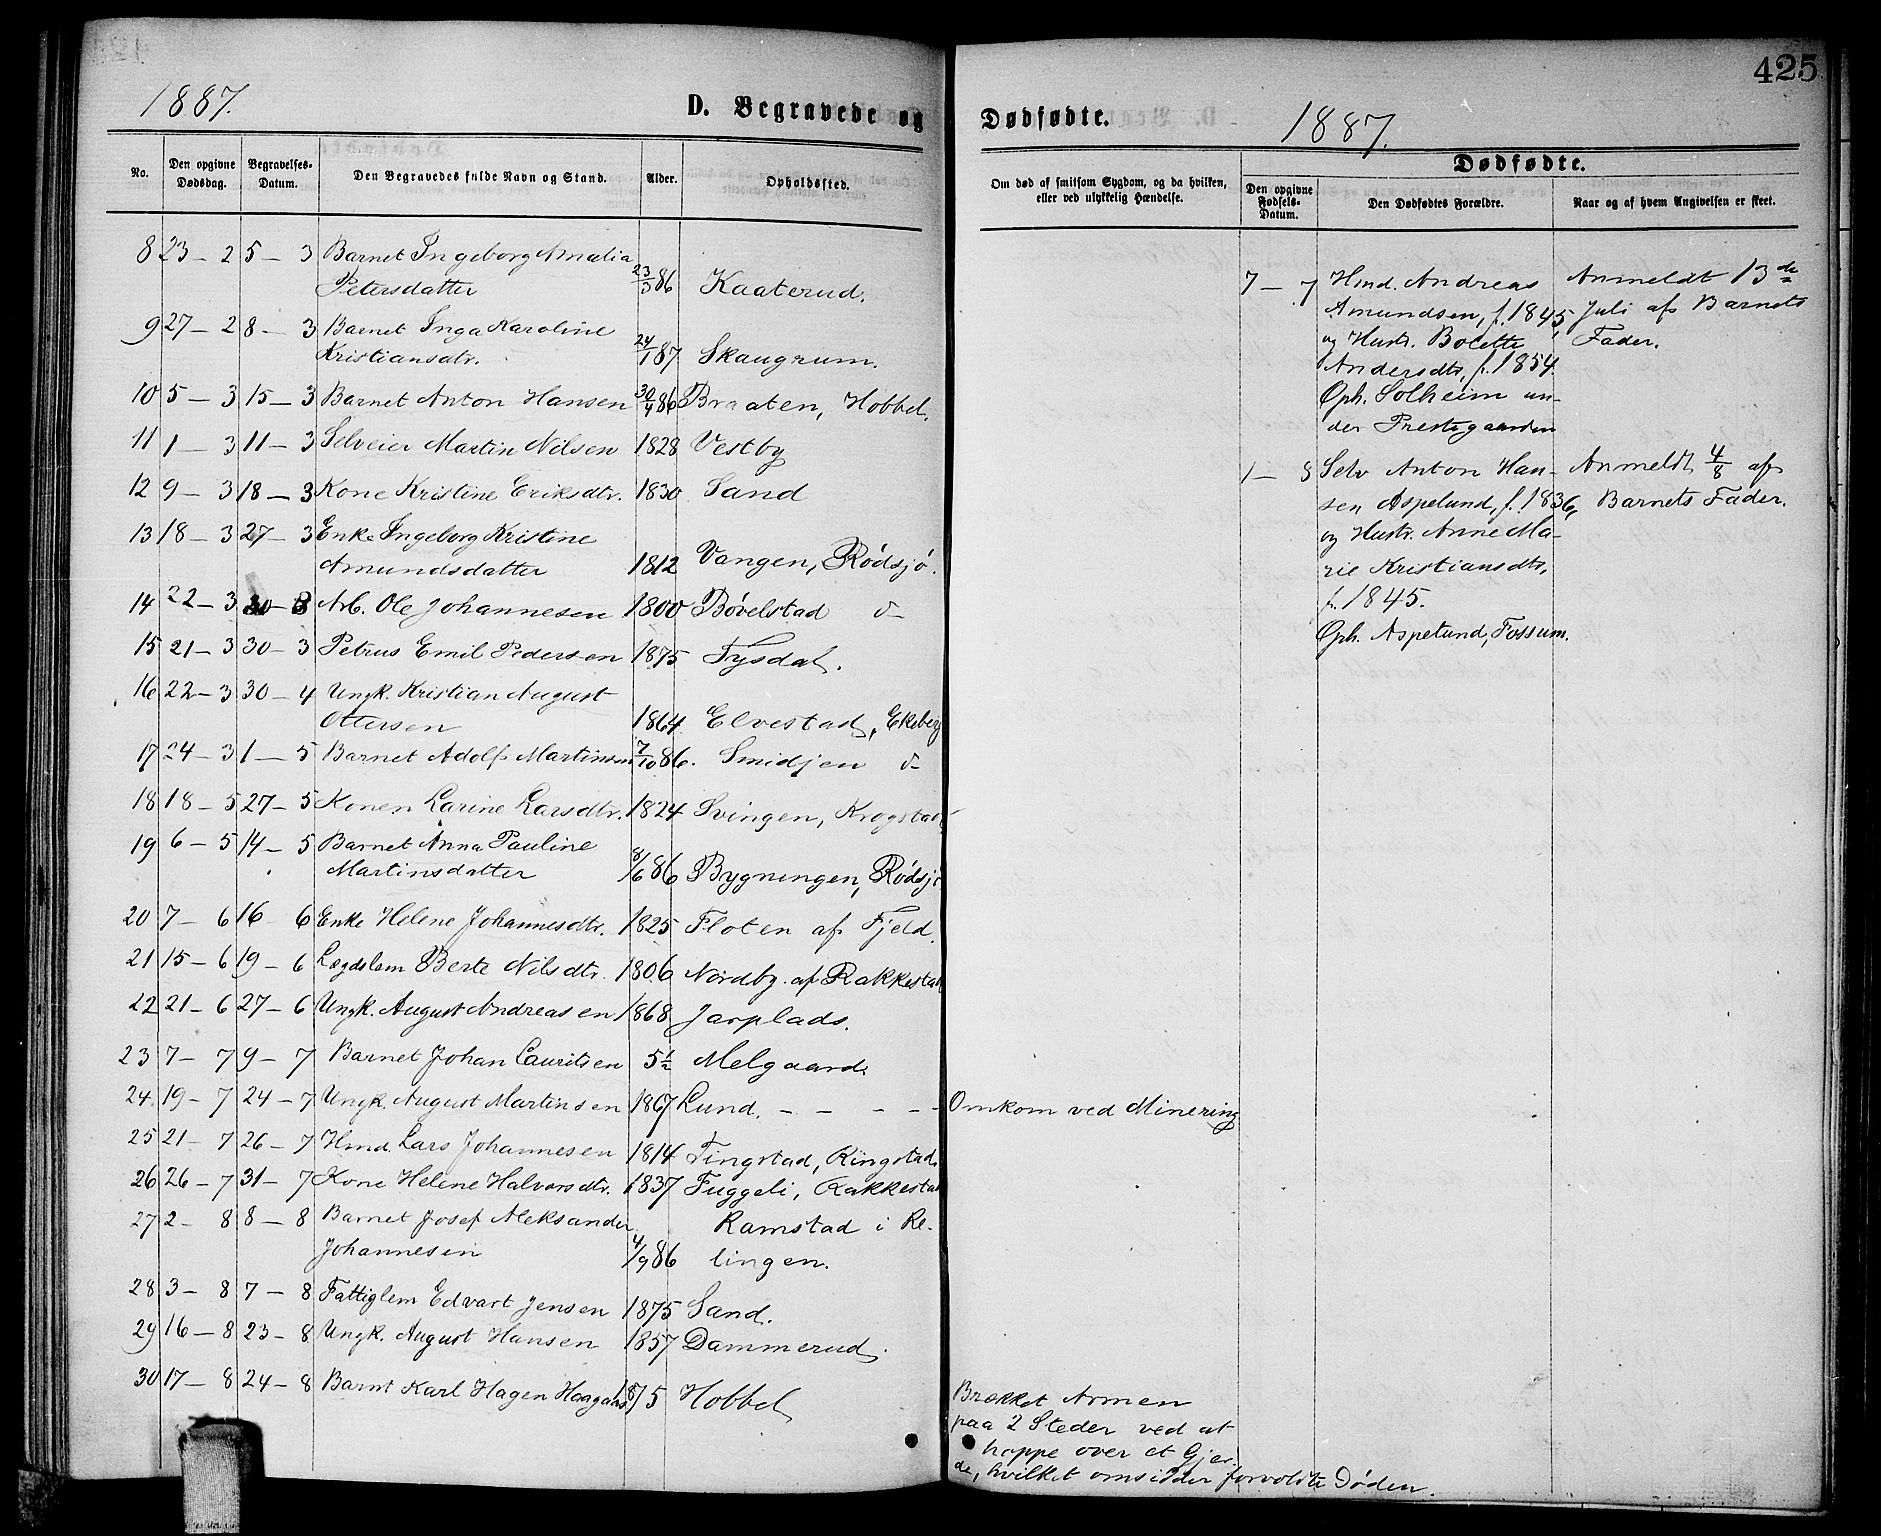 425
1887.
D. Begravede og
No.
Den opgivne Dødsdag.
Begravelses-Datum.
Den Begravedes fulde Navn og Stand.
Alder.
Opholdssted.
8 23 - 2 5 - 3 Barnet Ingeborg Amalia
Petersdatter 23/3 86 Kaaterud.
9 27 - 2 8 - 3 Barnet Inga Karoline
Kristiansdtr. 24/1 87 Skaugrum.
10 5 - 3 15 - 3 Barnet Anton Hansen 30/4 86 Braaten, Hobbel.
11 1 - 3 11 - 3 Selveier Martin Nilsen 1828 Vestby
12 9 - 3 18 - 3 Kone Kristine Eriksdtr. 1830 Sand
13 18 - 3 27 - 3 Enke Ingeborg Kristine
Amundsdatter 1812 Vangen, Rødsjø.
14 22 - 3 30 - 3 Arb. Ole Johannesen 1800 Bøvelstad d-
15 21 - 3 30 - 3 Petrus Emil Pedersen 1875 Tysdal.
16 22 - 3 30 - 4 Ungk. Kristian August
Ottersen 1864 Elvestad, Ekeberg
17 24 - 3 1 - 5 Barnet Adolf Martinsen 7/10 86. Smidjen d-
18 18 - 5 27 - 5 Konen Larine Larsdtr. 1824 Svingen, Krogstad
19 6 - 5 14 - 5 Barnet Anna Pauline
Martinsdatter 8/6 86 Bygningen, Rødsjø
20 7 - 6 16 - 6 Enke Helene Johannesdtr. 1825 Floten af Fjeld.
21 15 - 6 19 - 6 Lægdslem Berte Nilsdtr. 1806 Nordby af Rakkestad
22 21 - 6 27 - 6 Ungk. August Andreasen 1868 Jarplads.
23 7 - 7 9 - 7 Barnet Johan Lauritsen 5 1/2 Melgaard.
24 19 - 7 24 - 7 Ungk. August Martinsen 1867 Lund. - - - - -
25 21 - 7 26 - 7 Hmd. Lars Johannesen 1814 Tingstad, Ringstad.
26 26 - 7 31 - 7 Kone Helene Halvorsdtr. 1837 Fuggeli, Rakkestad
27 2 - 8 8 - 8 Barnet Josef Aleksander Ramstad i Re-
Johannesen 4/9 86 lingen.
28 3 - 8 7 - 8 Fattiglem Edvart Jensen 1875 Sand.
29 16 - 8 23 - 8 Ungk. August Hansen 1857 Dammerud.
30 17 - 8 24 - 8 Barnt Karl Hagen Haagaas 8/ 5 Hobbel
Dødfødte.
1887.
Om død af smitsom Sygdom, og da hvilken,
eller ved ulykkelig Hændelse.
Dødfødte.
Den opgivne Fødsels-Datum.
Den Dødfødtes Forældre.
Naar og af hvem Angivelsen er skeet.
7 - 7 Hmd. Andreas Anmeldt 13de
Amundsen, f. 1845, Juli af Barnets
og Hustr. Bolette Fader.
Andersdtr, f. 1854
Oph. Solheim un-
der Prestegaarden
1 - 8 Selv Anton Han- Anmeldt 4/8 af
sen Aspelund, f. 1836, Barnets Fader.
og Hustr. Anne Ma-
rie Kristiansdtr,
f. 1845.
Oph. Aspelund, Fossum.
Omkom ved Minering
Brækket Armen
paa 2 Steder ved at
hoppe over et Gjer-
de, hvilket omsidder forvoldte Døden.